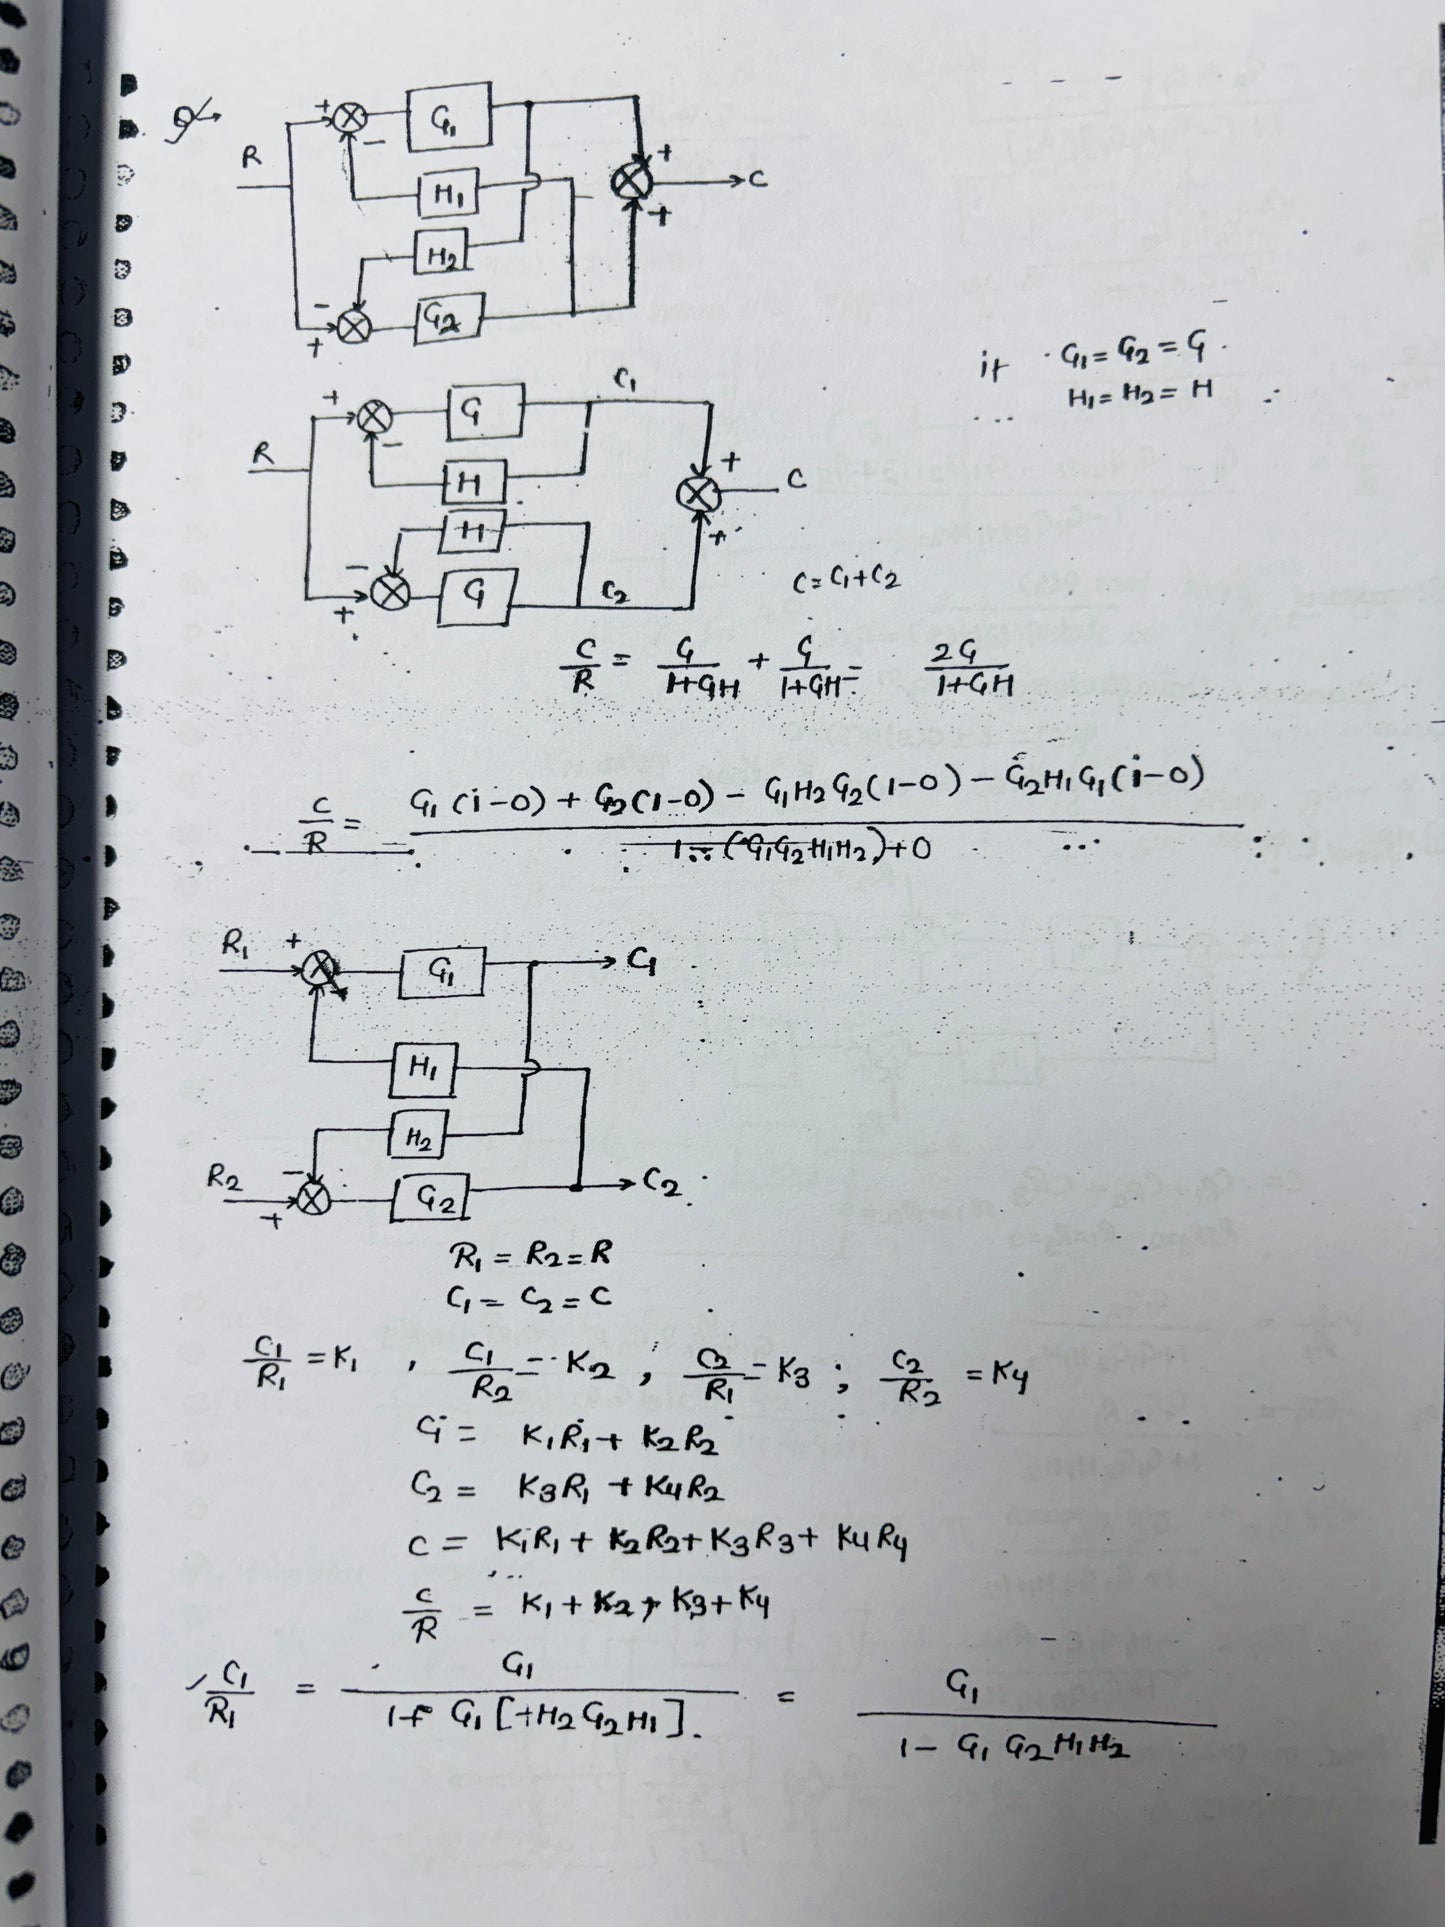 + G₁ +
R − H₁ C
H₂ +
− G₂
+
if G₁ = G₂ = G
H₁ = H₂ = H
+ G C₁
R − H + C
H +
− G C₂
+
C = C₁ + C₂
C/R = G/(1+GH) + G/(1+GH) = 2G/(1+GH)
C/R = (G₁(1−0) + G₂(1−0) − G₁H₂G₂(1−0) − G₂H₁G₁(1−0)) / (1 − (G₁G₂H₁H₂) + 0)
R₁ + G₁ C₁
−
H₁
H₂
R₂ − G₂ C₂
+
R₁ = R₂ = R
C₁ = C₂ = C
C₁/R₁ = K₁ , C₁/R₂ = K₂ , C₂/R₁ = K₃ ; C₂/R₂ = K₄
C₁ = K₁R₁ + K₂R₂
C₂ = K₃R₁ + K₄R₂
C = K₁R₁ + K₂R₂ + K₃R₃ + K₄R₄
C/R = K₁ + K₂ + K₃ + K₄
C₁/R₁ = G₁/(1+G₁[+H₂G₂H₁]) = G₁/(1−G₁G₂H₁H₂)